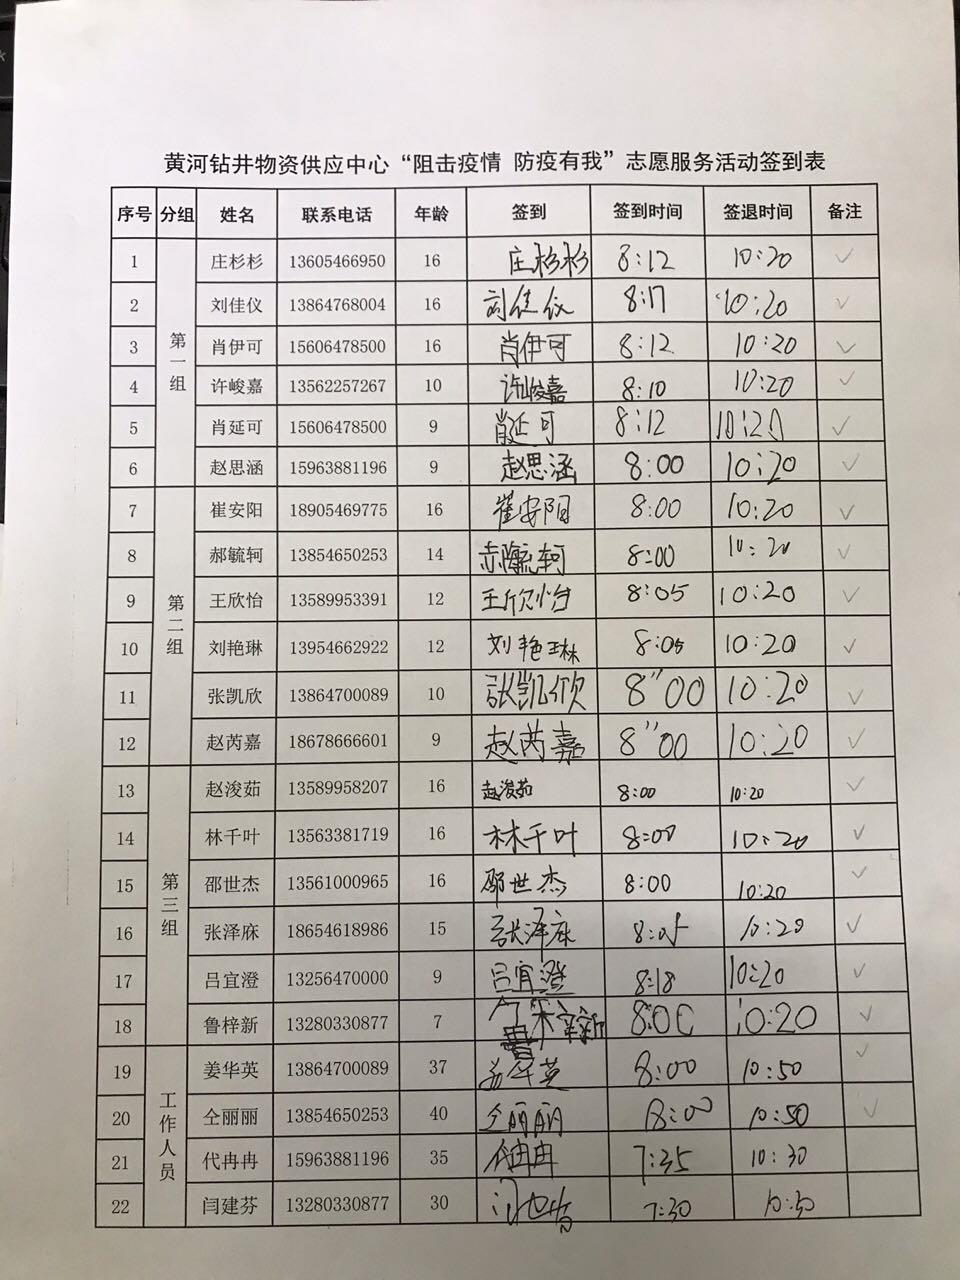 黄河钻井物资供应中心“阻击疫情 防疫有我”志愿服务活动签到表
序号 分组 姓名 联系电话 年龄 签到 签到时间 签退时间 备注
第一组
1 庄杉杉 13605466950 16 庄杉杉 8:12 10:20 ✓
2 刘佳仪 13864768004 16 刘佳仪 8:17 10:20 ✓
3 肖伊可 15606478500 16 肖伊可 8:12 10:20 ✓
4 许峻嘉 13562257267 10 许峻嘉 8:10 10:20 ✓
5 肖延可 15606478500 9 肖延可 8:12 10:20 ✓
6 赵思涵 15963881196 9 赵思涵 8:00 10:20 ✓
第二组
7 崔安阳 18905469775 16 崔安阳 8:00 10:20 ✓
8 郝毓轲 13854650253 14 郝毓轲 8:00 10:20 ✓
9 王欣怡 13589953391 12 王欣怡 8:05 10:20 ✓
10 刘艳琳 13954662922 12 刘艳琳 8:05 10:20 ✓
11 张凯欣 13864700089 10 张凯欣 8"00 10:20 ✓
12 赵芮嘉 18678666601 9 赵芮嘉 8"00 10:20 ✓
第三组
13 赵浚茹 13589958207 16 赵浚茹 8:00 10:20 ✓
14 林千叶 13563381719 16 林千叶 8:00 10:20 ✓
15 邵世杰 13561000965 16 邵世杰 8:00 10:20 ✓
16 张泽庥 18654618986 15 张泽庥 8:05 10:20 ✓
17 吕宜澄 13256470000 9 吕宜澄 8:18 10:20 ✓
18 鲁梓新 13280330877 7 鲁梓新 8:00 10:20 ✓
工作人员
19 姜华英 13864700089 37 姜华英 8:00 10:50 ✓
20 仝丽丽 13854650253 40 仝丽丽 8:00 10:50 ✓
21 代冉冉 15963881196 35 代冉冉 7:35 10:30
22 闫建芬 13280330877 30 7:30